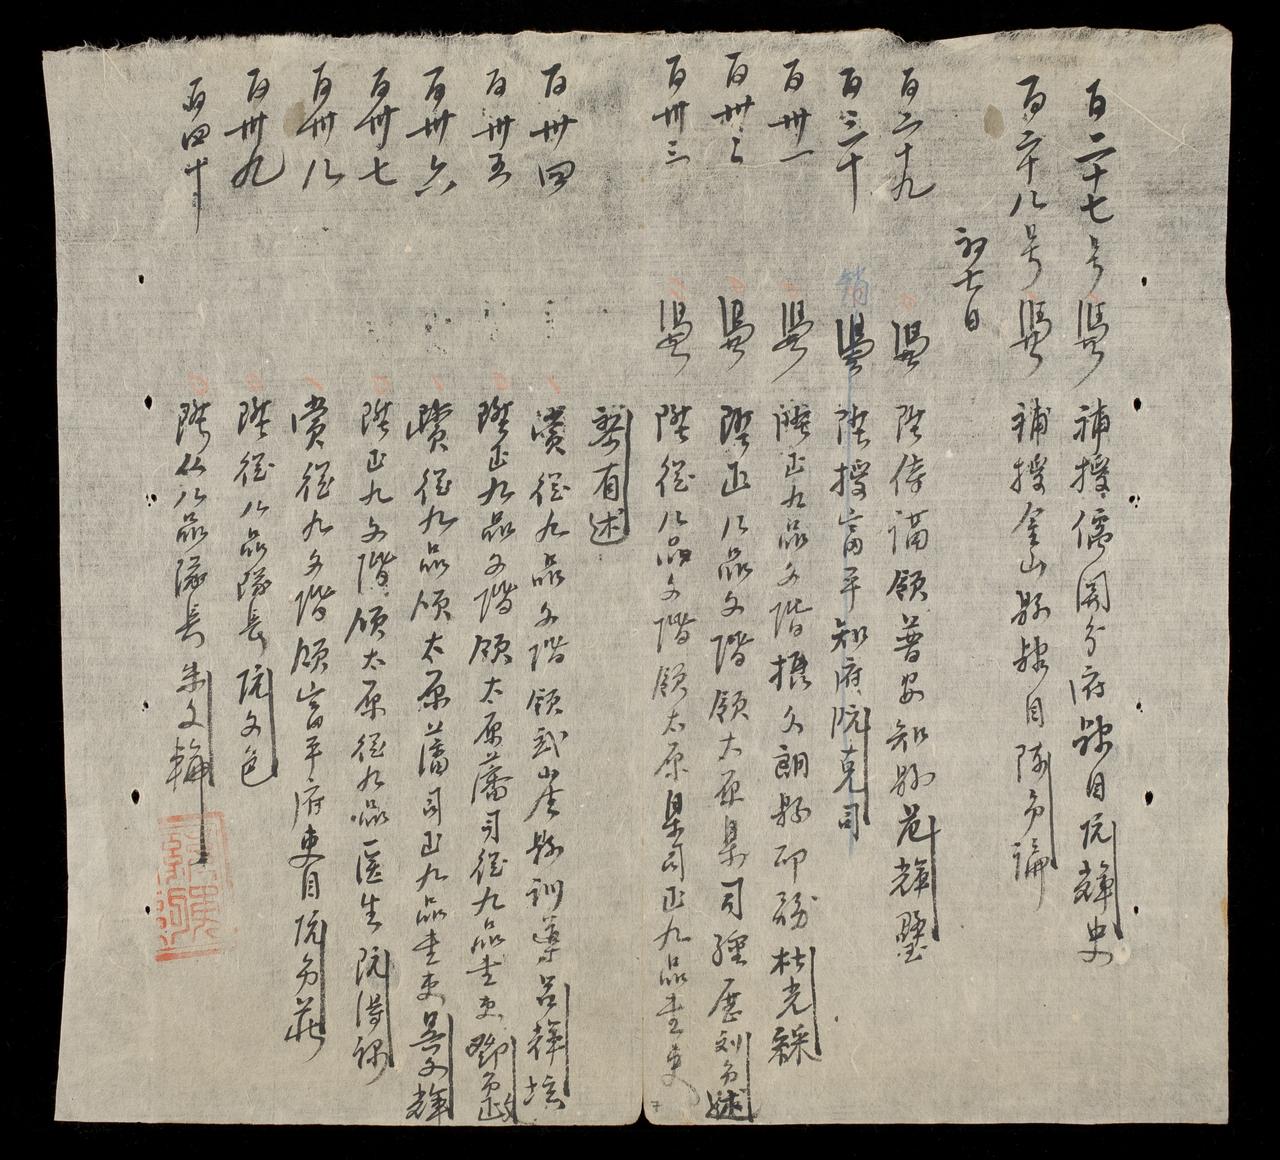 百二十七号 憑 補授儒関分府隷目阮輝史
百二十八号 憑 補授金山縣隷目陳多論
初七日
百二十九 憑 陞侍講領普安知縣范輝璧
百三十 銷 憑 陞授富平知府阮克司
百卅一 憑 陞正九品文階攝文朗縣印務杜光
百卅二 憑 陞正八品文階領太原臬司經歷刘多述
百卅三 憑 陞從八品文階領太原臬司正九品書吏
黎有述
百卅四 賞從九品文階領武崖縣訓導吕輝培
百卅五 陞正九品文階領太原藩司從九品書吏鄧
百卅六 賞從九品領太原藩司正九品書吏吳文輝
百卅七 陞正九文階領太原從九品医生阮得
百卅八 賞從九文階領富平府吏目阮多莊
百卅九 陞從八品隊長阮文色
百四十 陞從八品隊長朱文